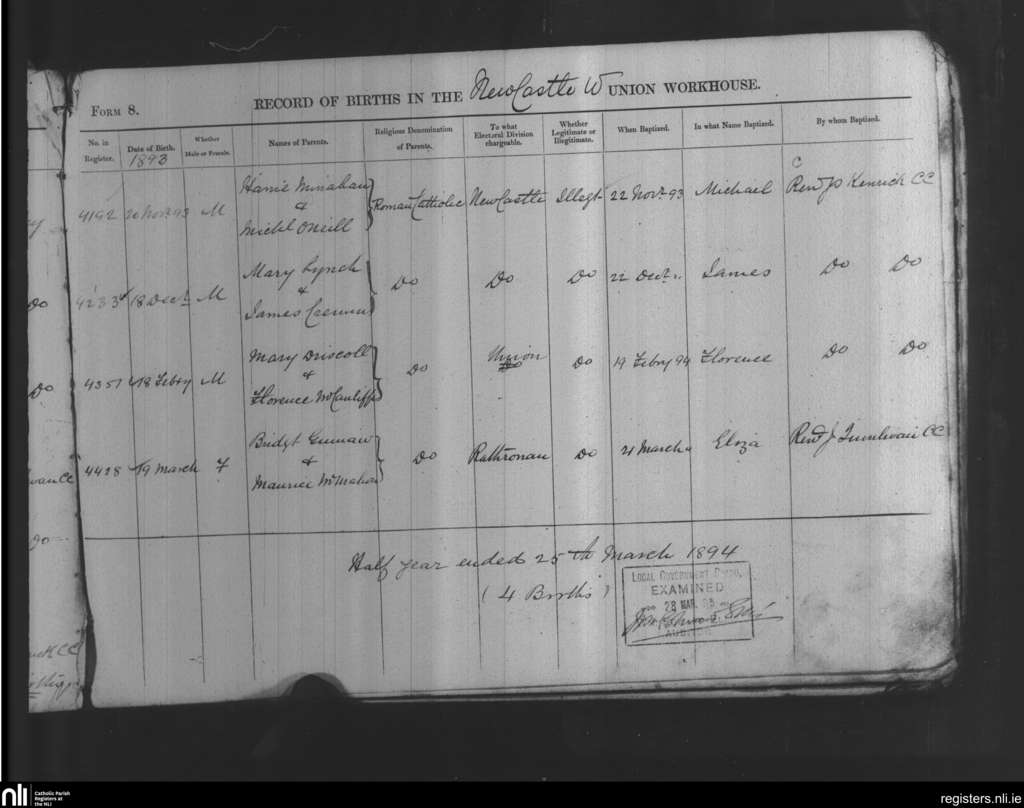 Form 8.
RECORD OF BIRTHS IN THE NewCastle W UNION WORKHOUSE.
No. in Register. Date of Birth. Whether Male or Female. Names of Parents. Religious Denomination of Parents. To what Electoral Division chargeable. Whether Legitimate or Illegitimate. When Baptized. In what Name Baptized. By whom Baptized.
1893
Minahan C
4192 20 Novr 93 M & Roman Catholic NewCastle Illegt 22 Novr 93 Michael Revd Kenrick CC
Michl ONeill
Mary Lynch
4233 18 Decr M & Do Do Do 22 Decr James Do Do
James
Mary Driscoll Union
4351 18 Febry M & Do Do Do 19 Febry 94 Florence Do Do
Florence McCauliffe
Bridgt
4428 19 March F & Do Rathronan Do 21 March Eliza Revd J CC
Maurice McMahon
Half year ended 25th March 1894
(4 Births)
LOCAL GOVERNMENT BOARD,
EXAMINED
28 MAR. 95
AUDITOR
Do
Do
CC
Do
CC
nli Catholic Parish Registers at the NLI
registers.nli.ie